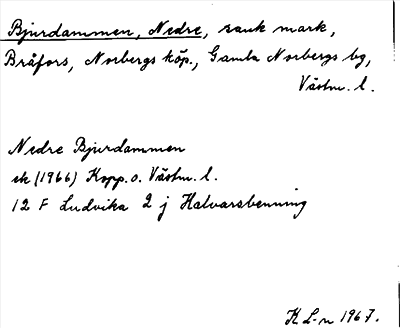 Bjurdammen, Nedre, sank mark,
Bråfors, Norbergs köp., Gamla Norbergs bg,
Västm. l.
Nedre Bjurdammen
ek (1966) Kopp. o. Västm. l.
12 F Ludvika 2 j Halvarsbenning
K L-n 1967.